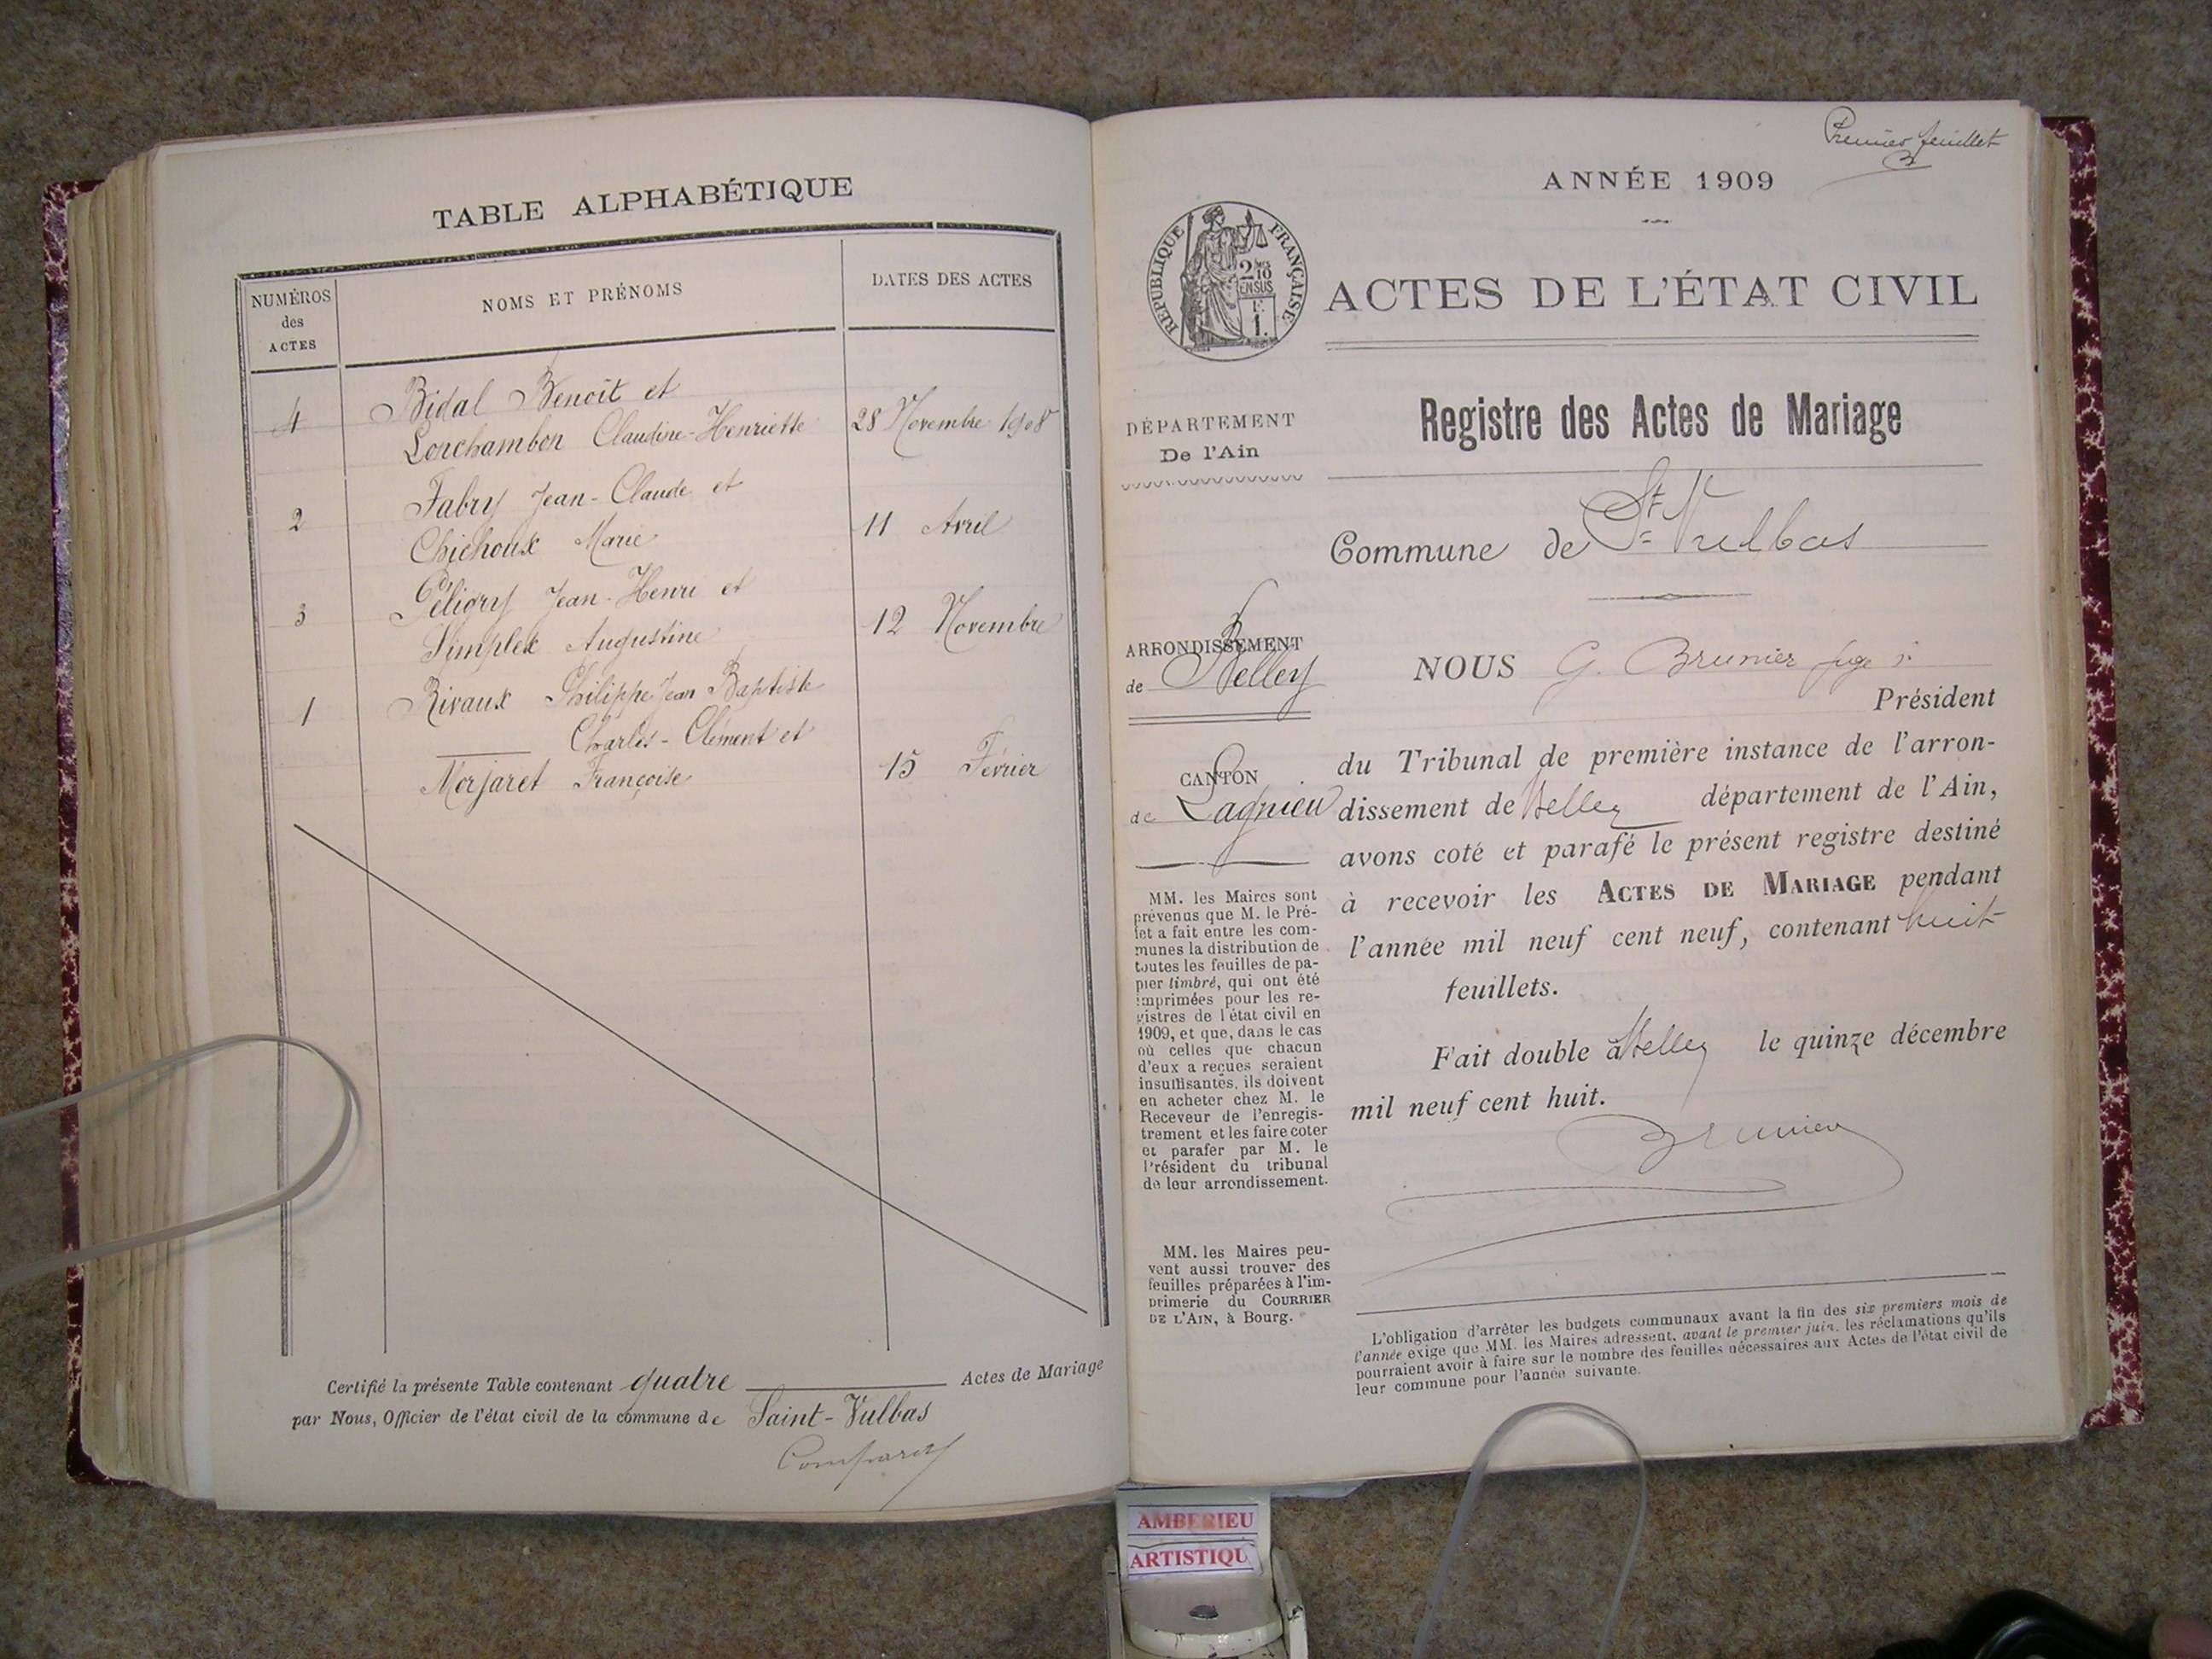 TABLE ALPHABÉTIQUE
NUMÉROS des ACTES
NOMS ET PRÉNOMS
DATES DES ACTES
4 Bidal Benoît et
Lonchambon Claudine-Henriette 28 Novembre 1908
Fabry Jean-Claude et
2 Chichoux Marie 11 Avril
Péligry Jean-Henri et
3 Simplex Augustine 12 Novembre
1 Rivaux Philippe Jean Baptiste
Charles-Clément et
Morjaret Françoise 15 Février
Certifié la présente Table contenant quatre Actes de Mariage
par Nous, Officier de l'état civil de la commune de Saint-Vulbas
Premier feuillet
ANNÉE 1909
RÉPUBLIQUE FRANÇAISE
2/10
EN SUS
1.
ACTES DE L'ÉTAT CIVIL
DÉPARTEMENT
De l'Ain
Registre des Actes de Mariage
Commune de St Vulbas
ARRONDISSEMENT
de Belley
CANTON
de Lagnieu
MM. les Maires sont
prévenus que M. le Pré-
fet a fait entre les com-
munes la distribution de
toutes les feuilles de pa-
pier timbré, qui ont été
imprimées pour les re-
gistres de l'état civil en
1909, et que, dans le cas
où celles que chacun
d'eux a reçues seraient
insuffisantes, ils doivent
en acheter chez M. le
Receveur de l'enregis-
trement et les faire coter
et parafer par M. le
Président du tribunal
de leur arrondissement.
MM. les Maires peu-
vent aussi trouver des
feuilles préparées à l'im-
primerie du COURRIER
DE L'AIN, à Bourg.
NOUS G. Brunier juge
Président
du Tribunal de première instance de l'arron-
dissement de Belley département de l'Ain,
avons coté et parafé le présent registre destiné
à recevoir les ACTES DE MARIAGE pendant
l'année mil neuf cent neuf, contenant huit
feuillets.
Fait double à Belley le quinze décembre
mil neuf cent huit.
Brunier
L'obligation d'arrêter les budgets communaux avant la fin des six premiers mois de
l'année exige que MM. les Maires adressent, avant le premier juin, les réclamations qu'ils
pourraient avoir à faire sur le nombre des feuilles nécessaires aux Actes de l'état civil de
leur commune pour l'année suivante.
AMBERIEU
ARTISTIQU